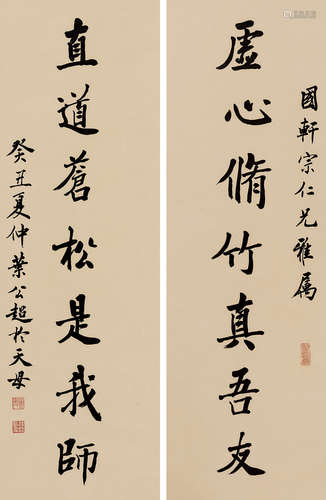 國軒宗仁兄雅屬
虛心脩竹真吾友
直道蒼松是我師
癸丑夏仲葉公超於天母